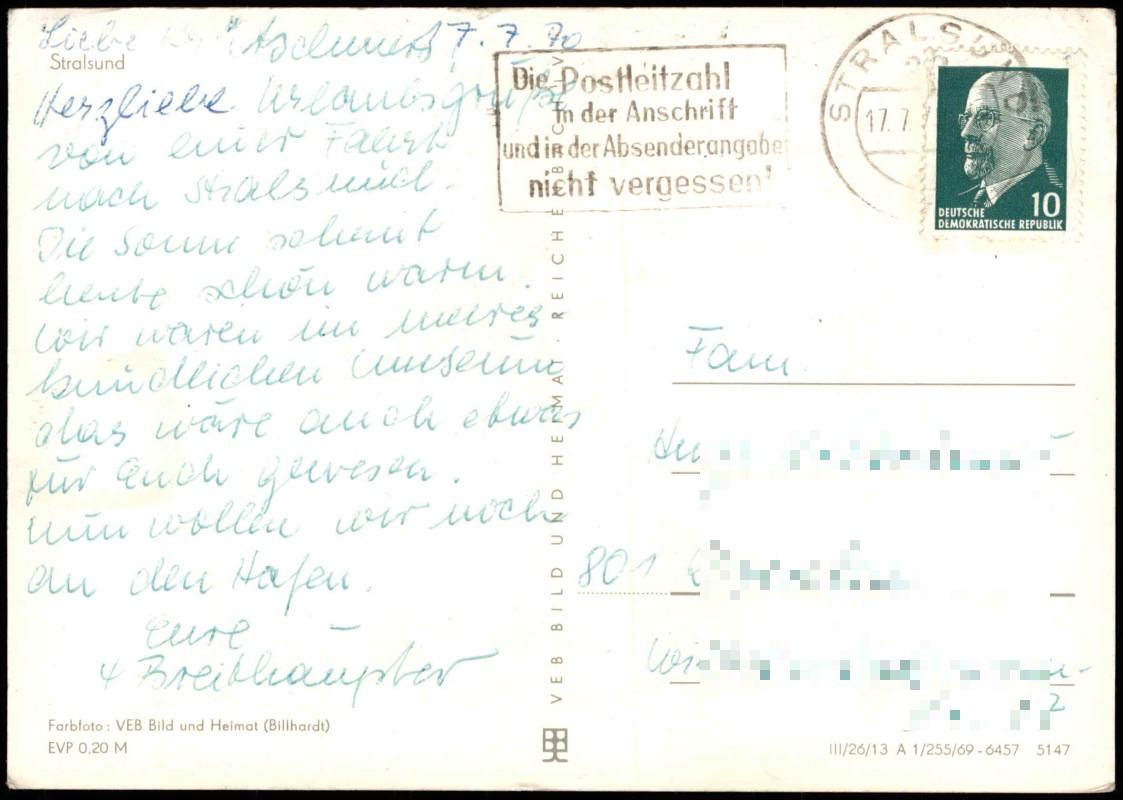 Liebe 7.7.70
Stralsund
Herzliebe Urlaubsgrüße
von einer Fahrt
nach Stralsund.
Die Sonne scheint
heute schön warm.
Wir waren im meeres-
kundlichen Museum
das wäre auch etwas
für Euch gewesen.
Nun wollen wir noch
an den Hafen.
Eure
4 Breithaupter
Farbfoto: VEB Bild und Heimat (Billhardt)
EVP 0,20 M
VEB BILD UND HEIMAT · REICHENBACH
Die Postleitzahl
in der Anschrift
und in der Absenderangabe
nicht vergessen!
STRALSUND
17.7.
10
DEUTSCHE
DEMOKRATISCHE REPUBLIK
Fam.
801
2
III/26/13 A 1/255/69-6457 5147